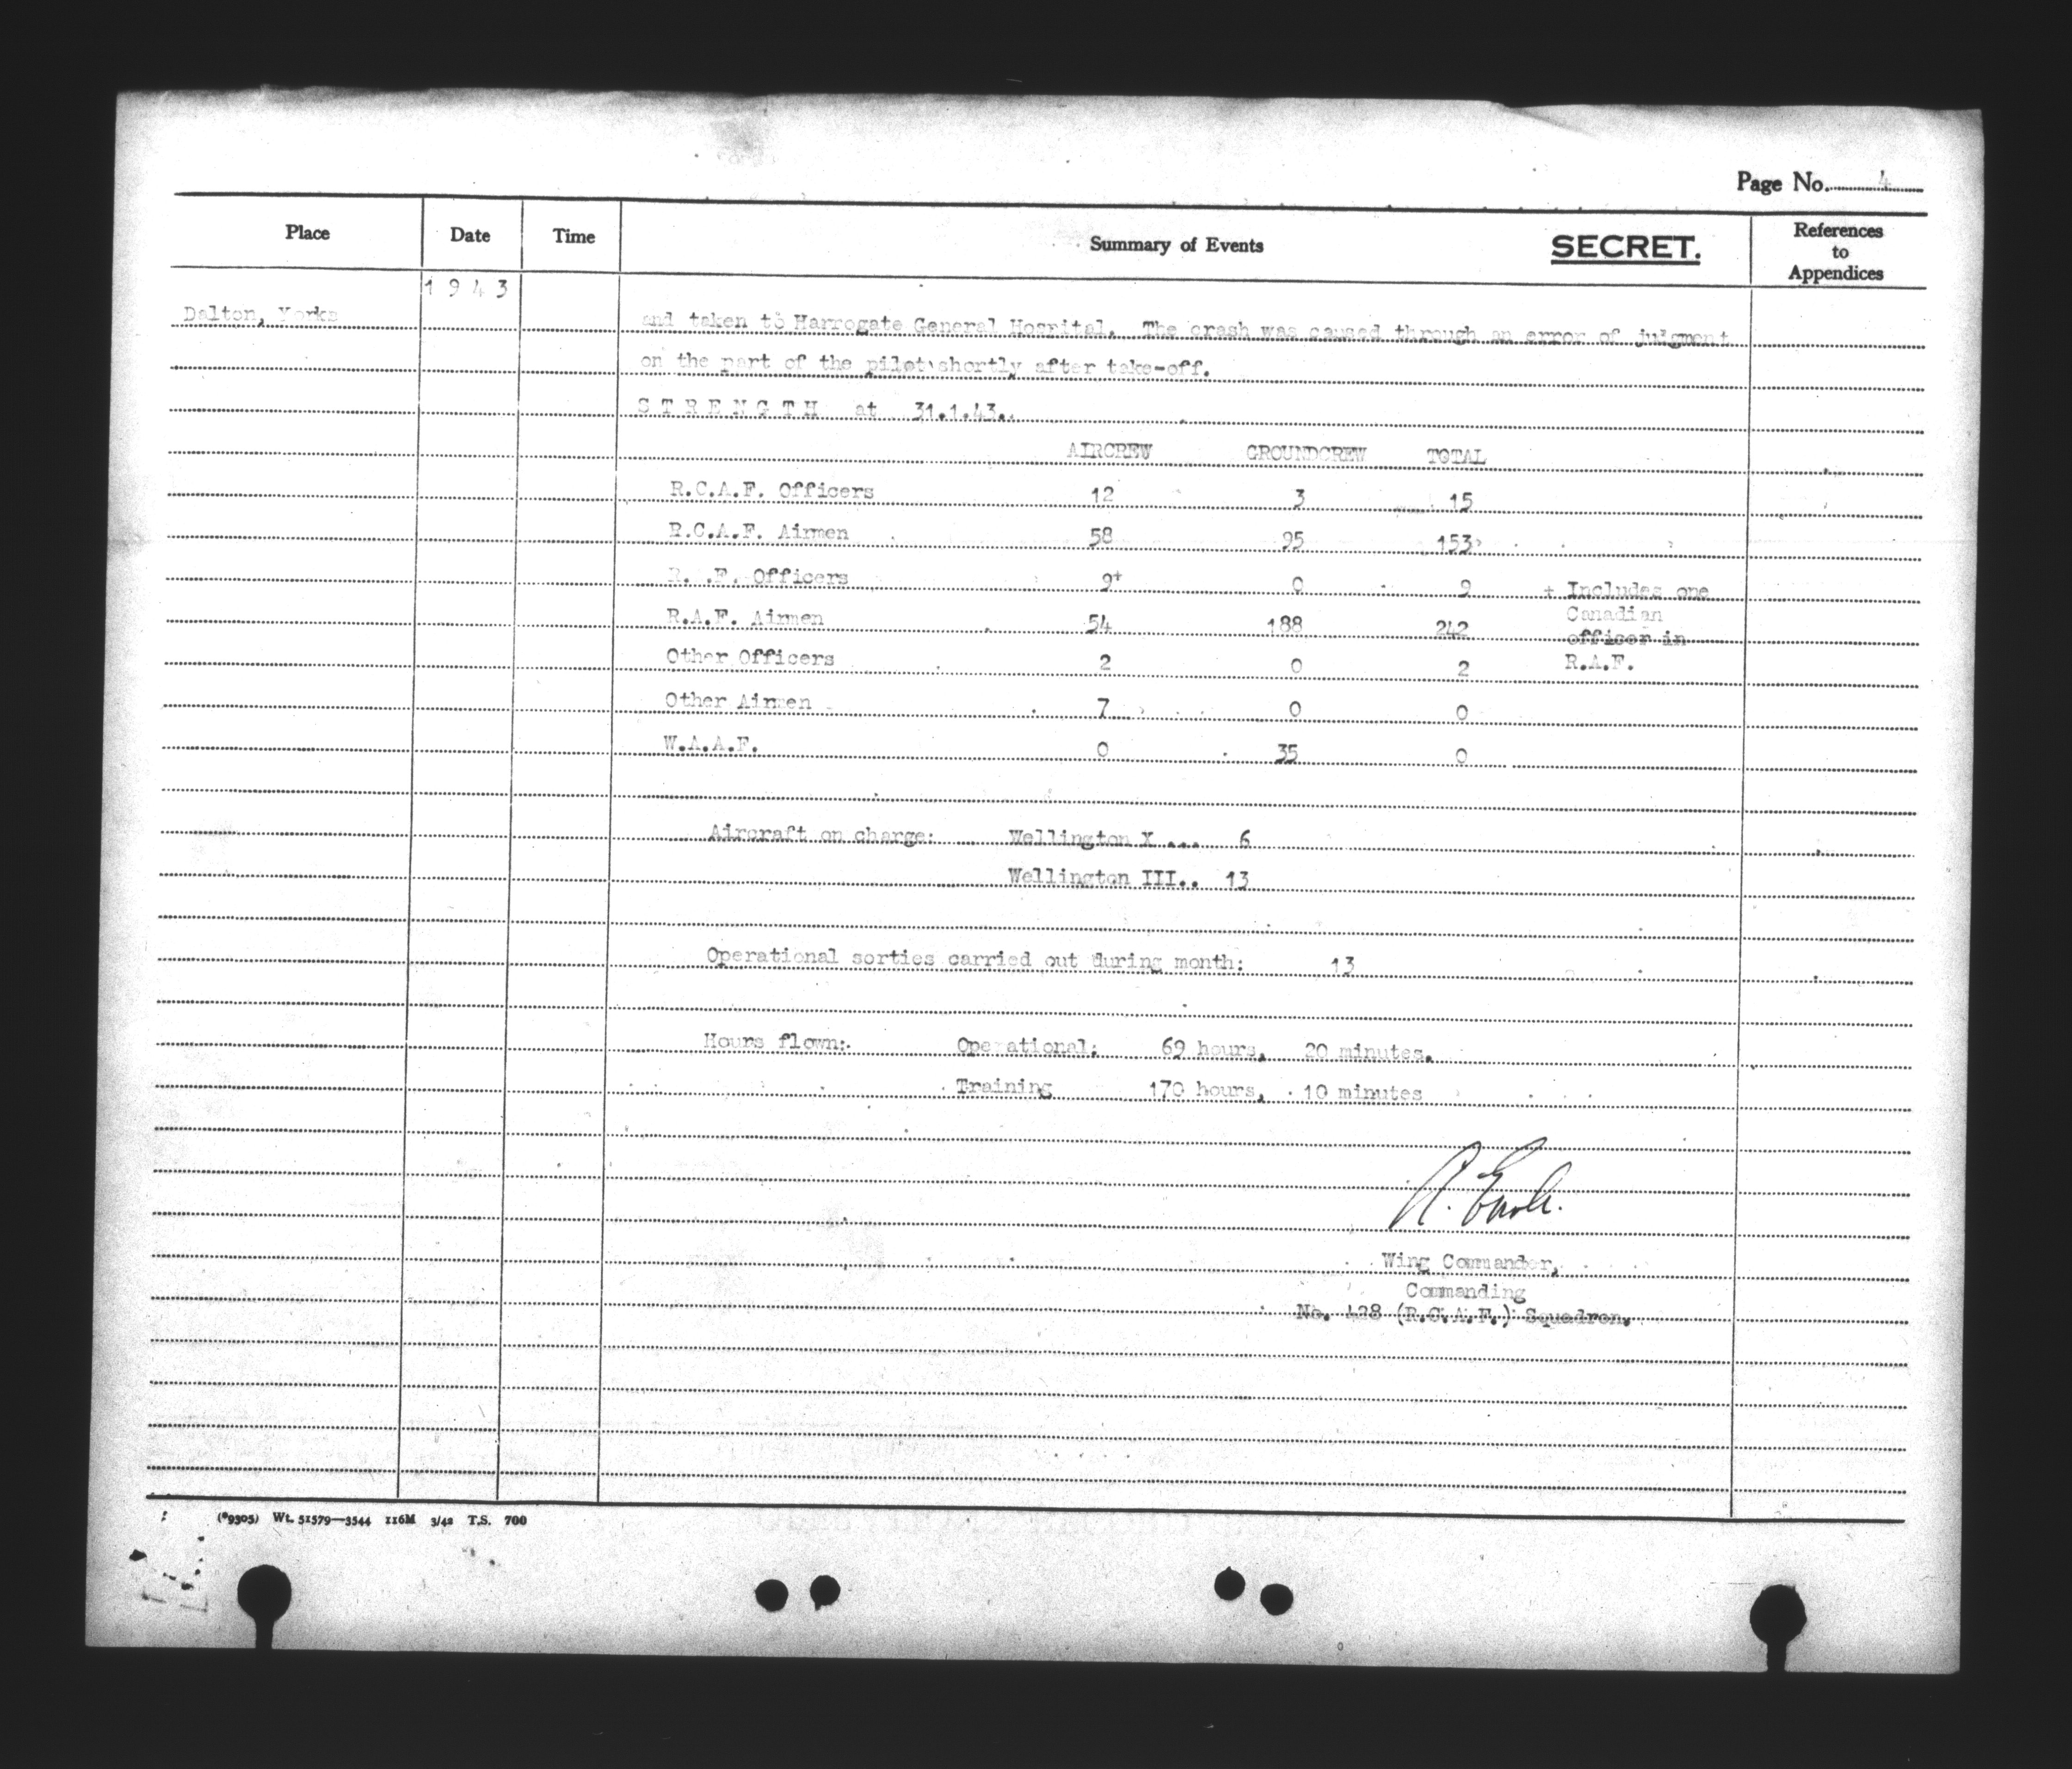 Page No. 4
Place Date Time Summary of Events SECRET. References to Appendices
1 9 4 3
Dalton, Yorks and taken to Harrogate General Hospital. The crash was caused through an error of judgment
on the part of the pilot shortly after take-off.
S T R E N G T H at 31.1.43.
AIRCREW GROUNDCREW TOTAL
R.C.A.F. Officers 12 3 15
R.C.A.F. Airmen 58 95 153
R. .F. Officers 9+ 0 9 + Includes one
Canadian
R.A.F. Airmen 54 188 242 officer in
Other Officers 2 0 2 R.A.F.
Other Airmen 7 0 0
W.A.A.F. 0 35 0
Aircraft on charge: Wellington X ... 6
Wellington III.. 13
Operational sorties carried out during month: 13
Hours flown: Operational: 69 hours, 20 minutes.
Training 170 hours, 10 minutes
Wing Commander,
Commanding
No. 428 (R.C.A.F.) Squadron.
(*9305) Wt. 51579—3544 116M 3/42 T.S. 700